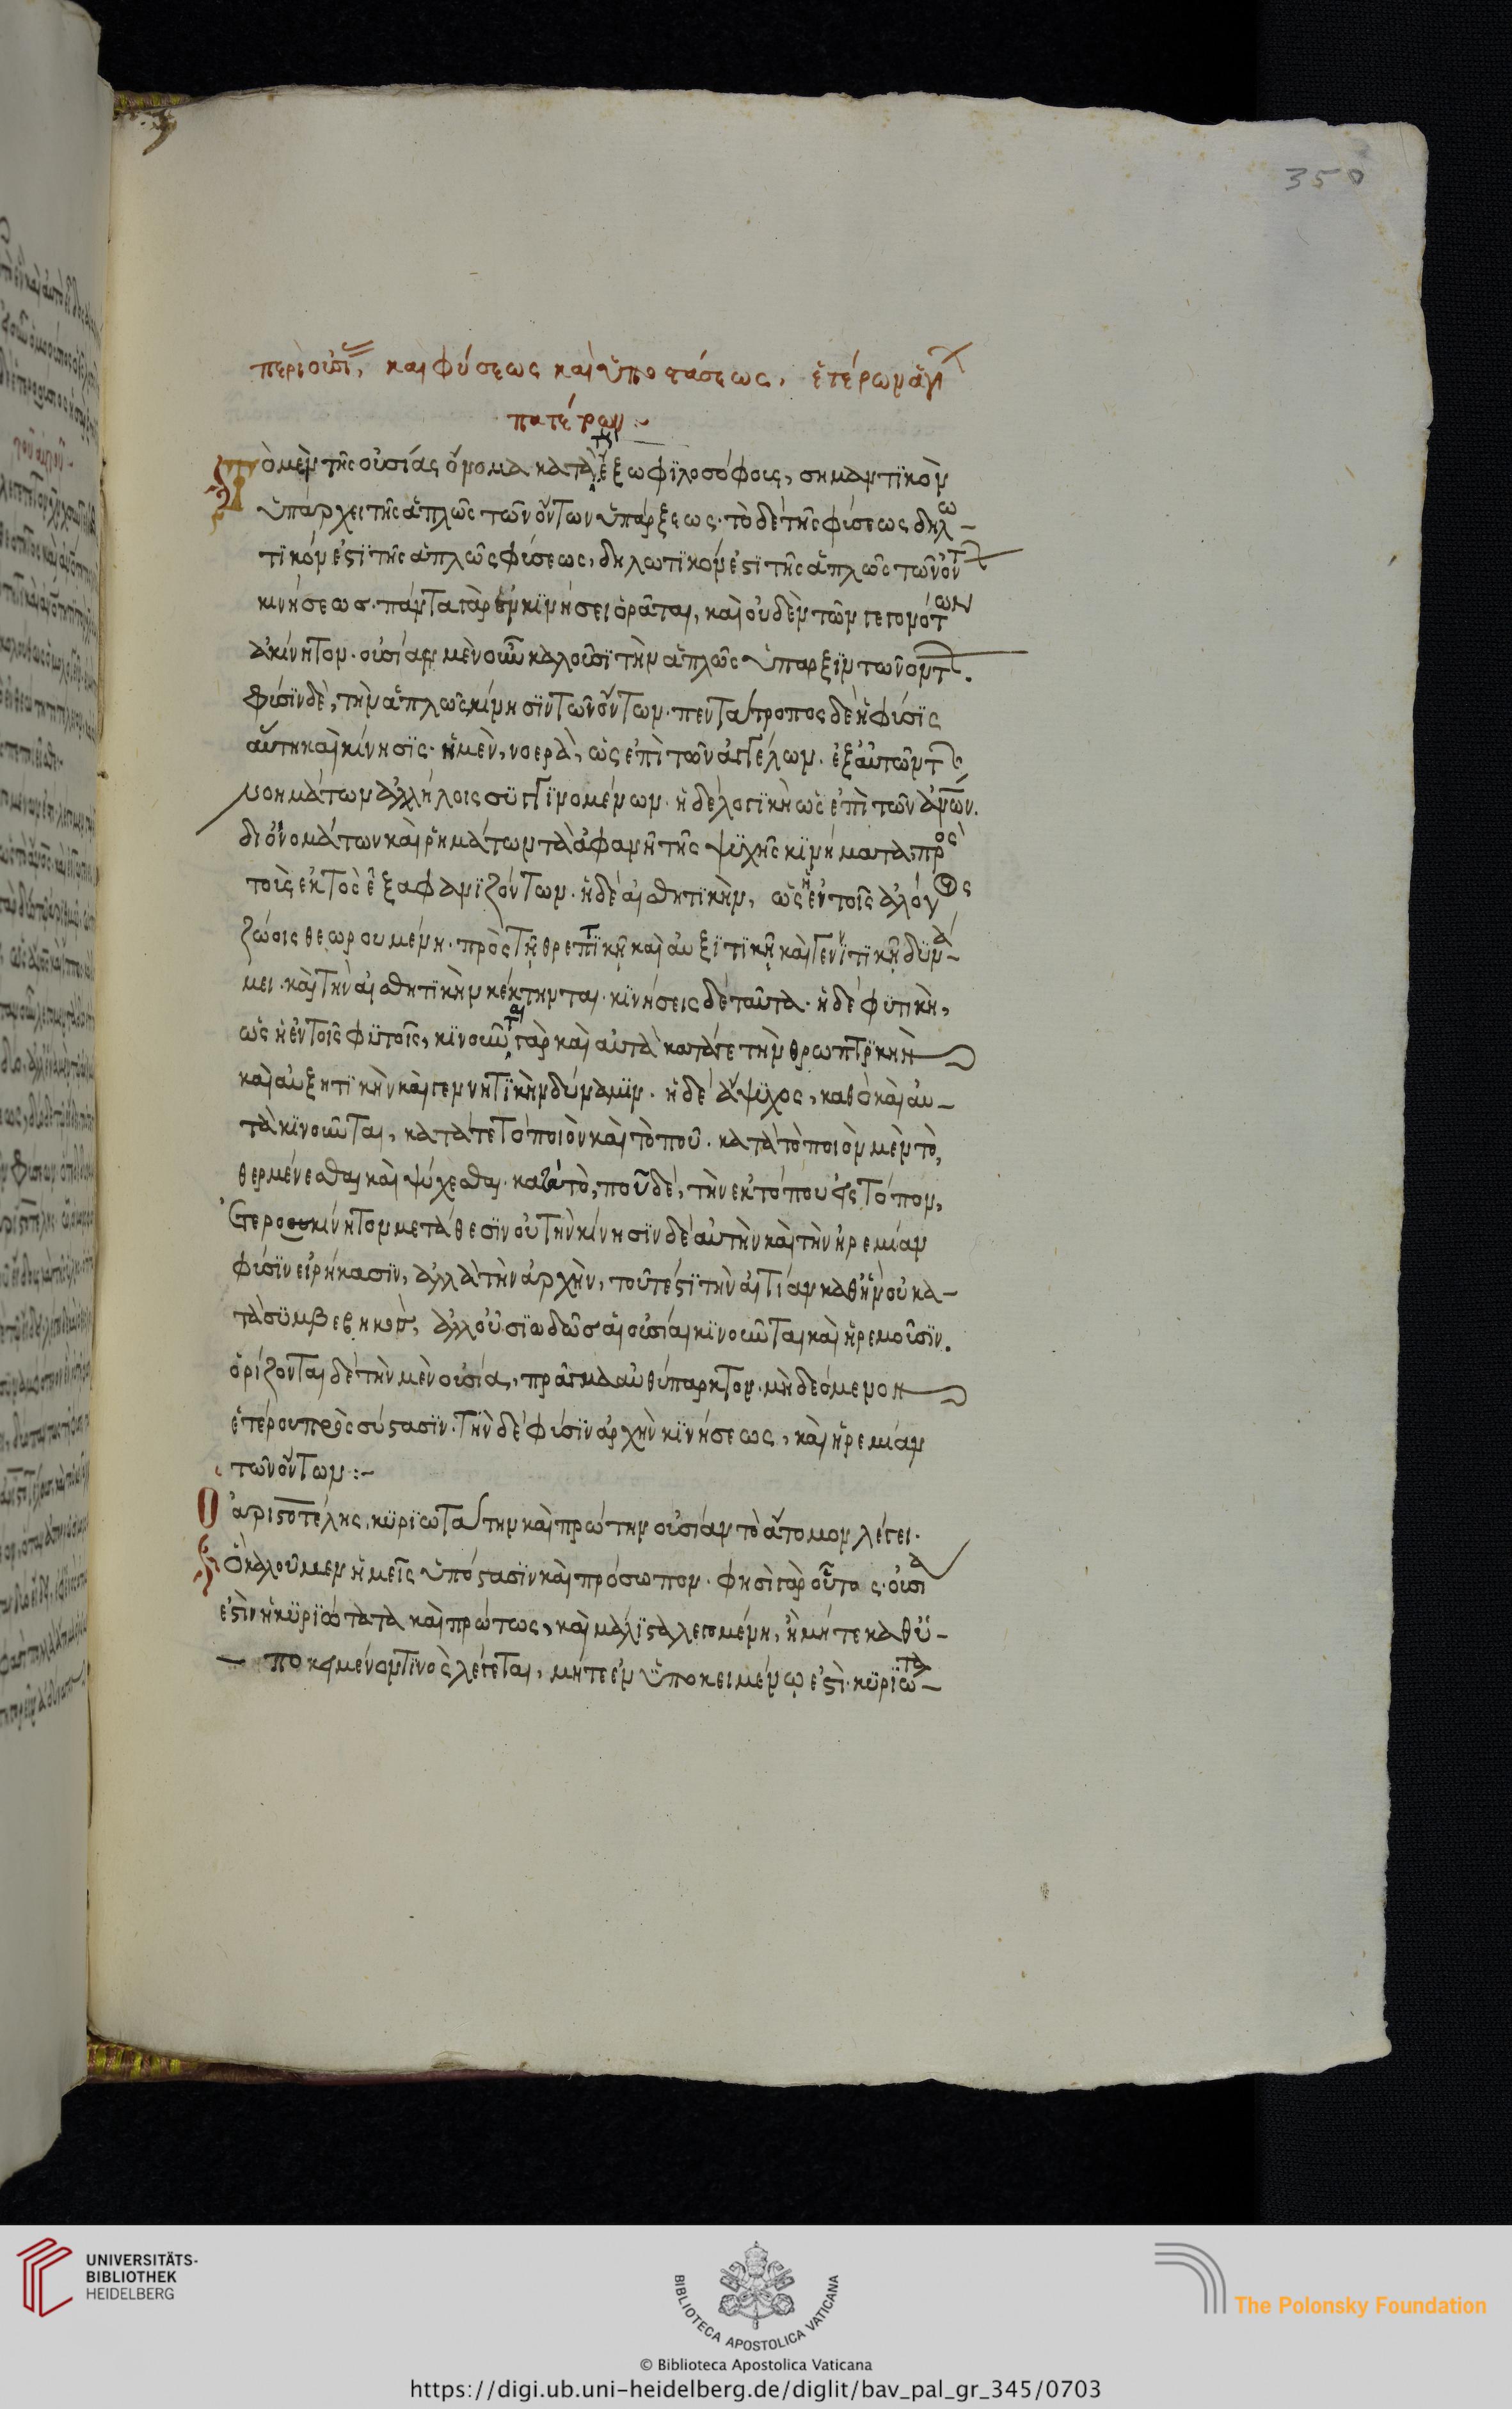 350
περὶ οὐσί, καὶ φύσεως καὶ ὑποστάσεως, ἑτέρων ἁγί
πατέρων :~
Τὸ μὲν τῆς οὐσίας ὄνομα κατὰ τοὺς ἔξω φϊλοσόφοις, σημαντϊκὸν
ὑπάρχει τῆς ἁπλῶς τῶν ὄντων ὑπάρξεως· τὸ δὲ τῆς φύσεως δηλω-
τϊκόν ἐστϊ τῆς ἁπλῶς φύσεως, δηλωτϊκόν ἐστϊ τῆς ἁπλῶς τῶν ὄντ
κινήσεως· πάντα γὰρ ἐν κϊνήσει ὁρᾶται, καὶ οὐδὲν τῶν γεγονότων
ἀκίνητον· οὐσίαν μὲν οὖν καλοῦσϊ τὴν ἁπλῶς ὕπαρξϊν τῶν ὄντ.
φύσϊν δὲ, τὴν ἁπλῶς κίνησϊν τῶν ὄντων· πεντάτροπος δὲ ἡ φύσϊς
αὕτη καὶ κίνησϊς· ἡ μὲν, νοερὰ, ὡς ἐπὶ τῶν ἀγγέλων· ἐξ αὐτῶν τ
νοημάτων ἀλλήλοις συγγϊνομένων· ἡ δὲ λογϊκὴ ὡς ἐπὶ τῶν ἀνων.
δι ὀνομάτων καὶ ῥημάτων τὰ ἀφανῆ τῆς ψϋχῆς κϊνήματα, πρὸς
τοὺς ἐκτὸς ἐξαφανϊζόντων· ἡ δὲ αἰσθητϊκὴν, ὡς ἡ ἐν τοῖς ἀλόγοις
ζώοις θεωρουμένη· πρὸς τῆ θρεπτϊκῆ καὶ αὐξϊτϊκῆ καὶ γεννϊτϊκῆ δϋνά-
μει· καὶ τὴν αἰσθητϊκὴν κέκτηνται· κϊνήσεις δὲ ταῦτα· ἡ δὲ φϋτικὴ,
ὡς ἡ ἐν τοῖς φϋτοῖς, κϊνοῦνται γὰρ καὶ αὐτὰ κατά τε τὴν θρωπτρϊκὴν
καὶ αὐξητϊκὴν καὶ γεννητϊκὴν δύναμϊν· ἡ δὲ ἄψϋχος, καθὸ καὶ αὐ-
τὰ κϊνοῦνται, κατά τε τὸ ποιὸν καὶ τὸ ποῦ· κατὰ τὸ ποιὸν μὲν τὸ,
θερμένεσθαι καὶ ψύχεσθαι· κατὰ τὸ, ποῦ δὲ, τὴν ἐκ τόπου εἰς τόπον,
ἑτεροκίνητον μετάθεσϊν οὐ τὴν κίνησϊν δὲ αὐτὴν καὶ τὴν ἠρεμίαν
φύσϊν εἰρήκασϊν, ἀλλὰ τὴν ἀρχὴν, τοῦτέστϊ τὴν αἰτίαν καθ ἣν οὐ κα-
τὰ σϋμβεβηκὸς, ἀλλ οὐσϊωδῶς αἱ οὐσίαι κϊνοῦνται καὶ ἠρεμοῦσϊν.
ὁρίζονται δὲ τὴν μὲν οὐσία, πρᾶγμα αὐθύπαρκτον· μὴ δεόμενον
ἑτέρου πρὸς σύστασϊν· τὴν δὲ φύσϊν ἀρχὴν κϊνήσεως, καὶ ἠρεμίαν
τῶν ὄντων :-
Ὁ ἀριστοτέλης, κϋρϊωτάτην καὶ πρώτην οὐσίαν τὸ ἄτομον λέγει·
ὃ καλοῦμεν ἡμεῖς ὑπόστασϊν καὶ πρόσωπον· φησὶ γὰρ οὗτος· οὐσία
ἐστὶν ἡ κϋρϊώτατα καὶ πρώτως, καὶ μάλϊστα λεγομένη, ἣ μήτε καθ ὑ-
ποκειμένου τϊνὸς λέγεται, μήτε ἐν ὑποκειμένω ἐστὶ· κϋρϊώτα-
UNIVERSITÄTS-
BIBLIOTHEK
HEIDELBERG
BIBLIOTECA APOSTOLICA VATICANA
The Polonsky Foundation
© Biblioteca Apostolica Vaticana
https://digi.ub.uni-heidelberg.de/diglit/bav_pal_gr_345/0703